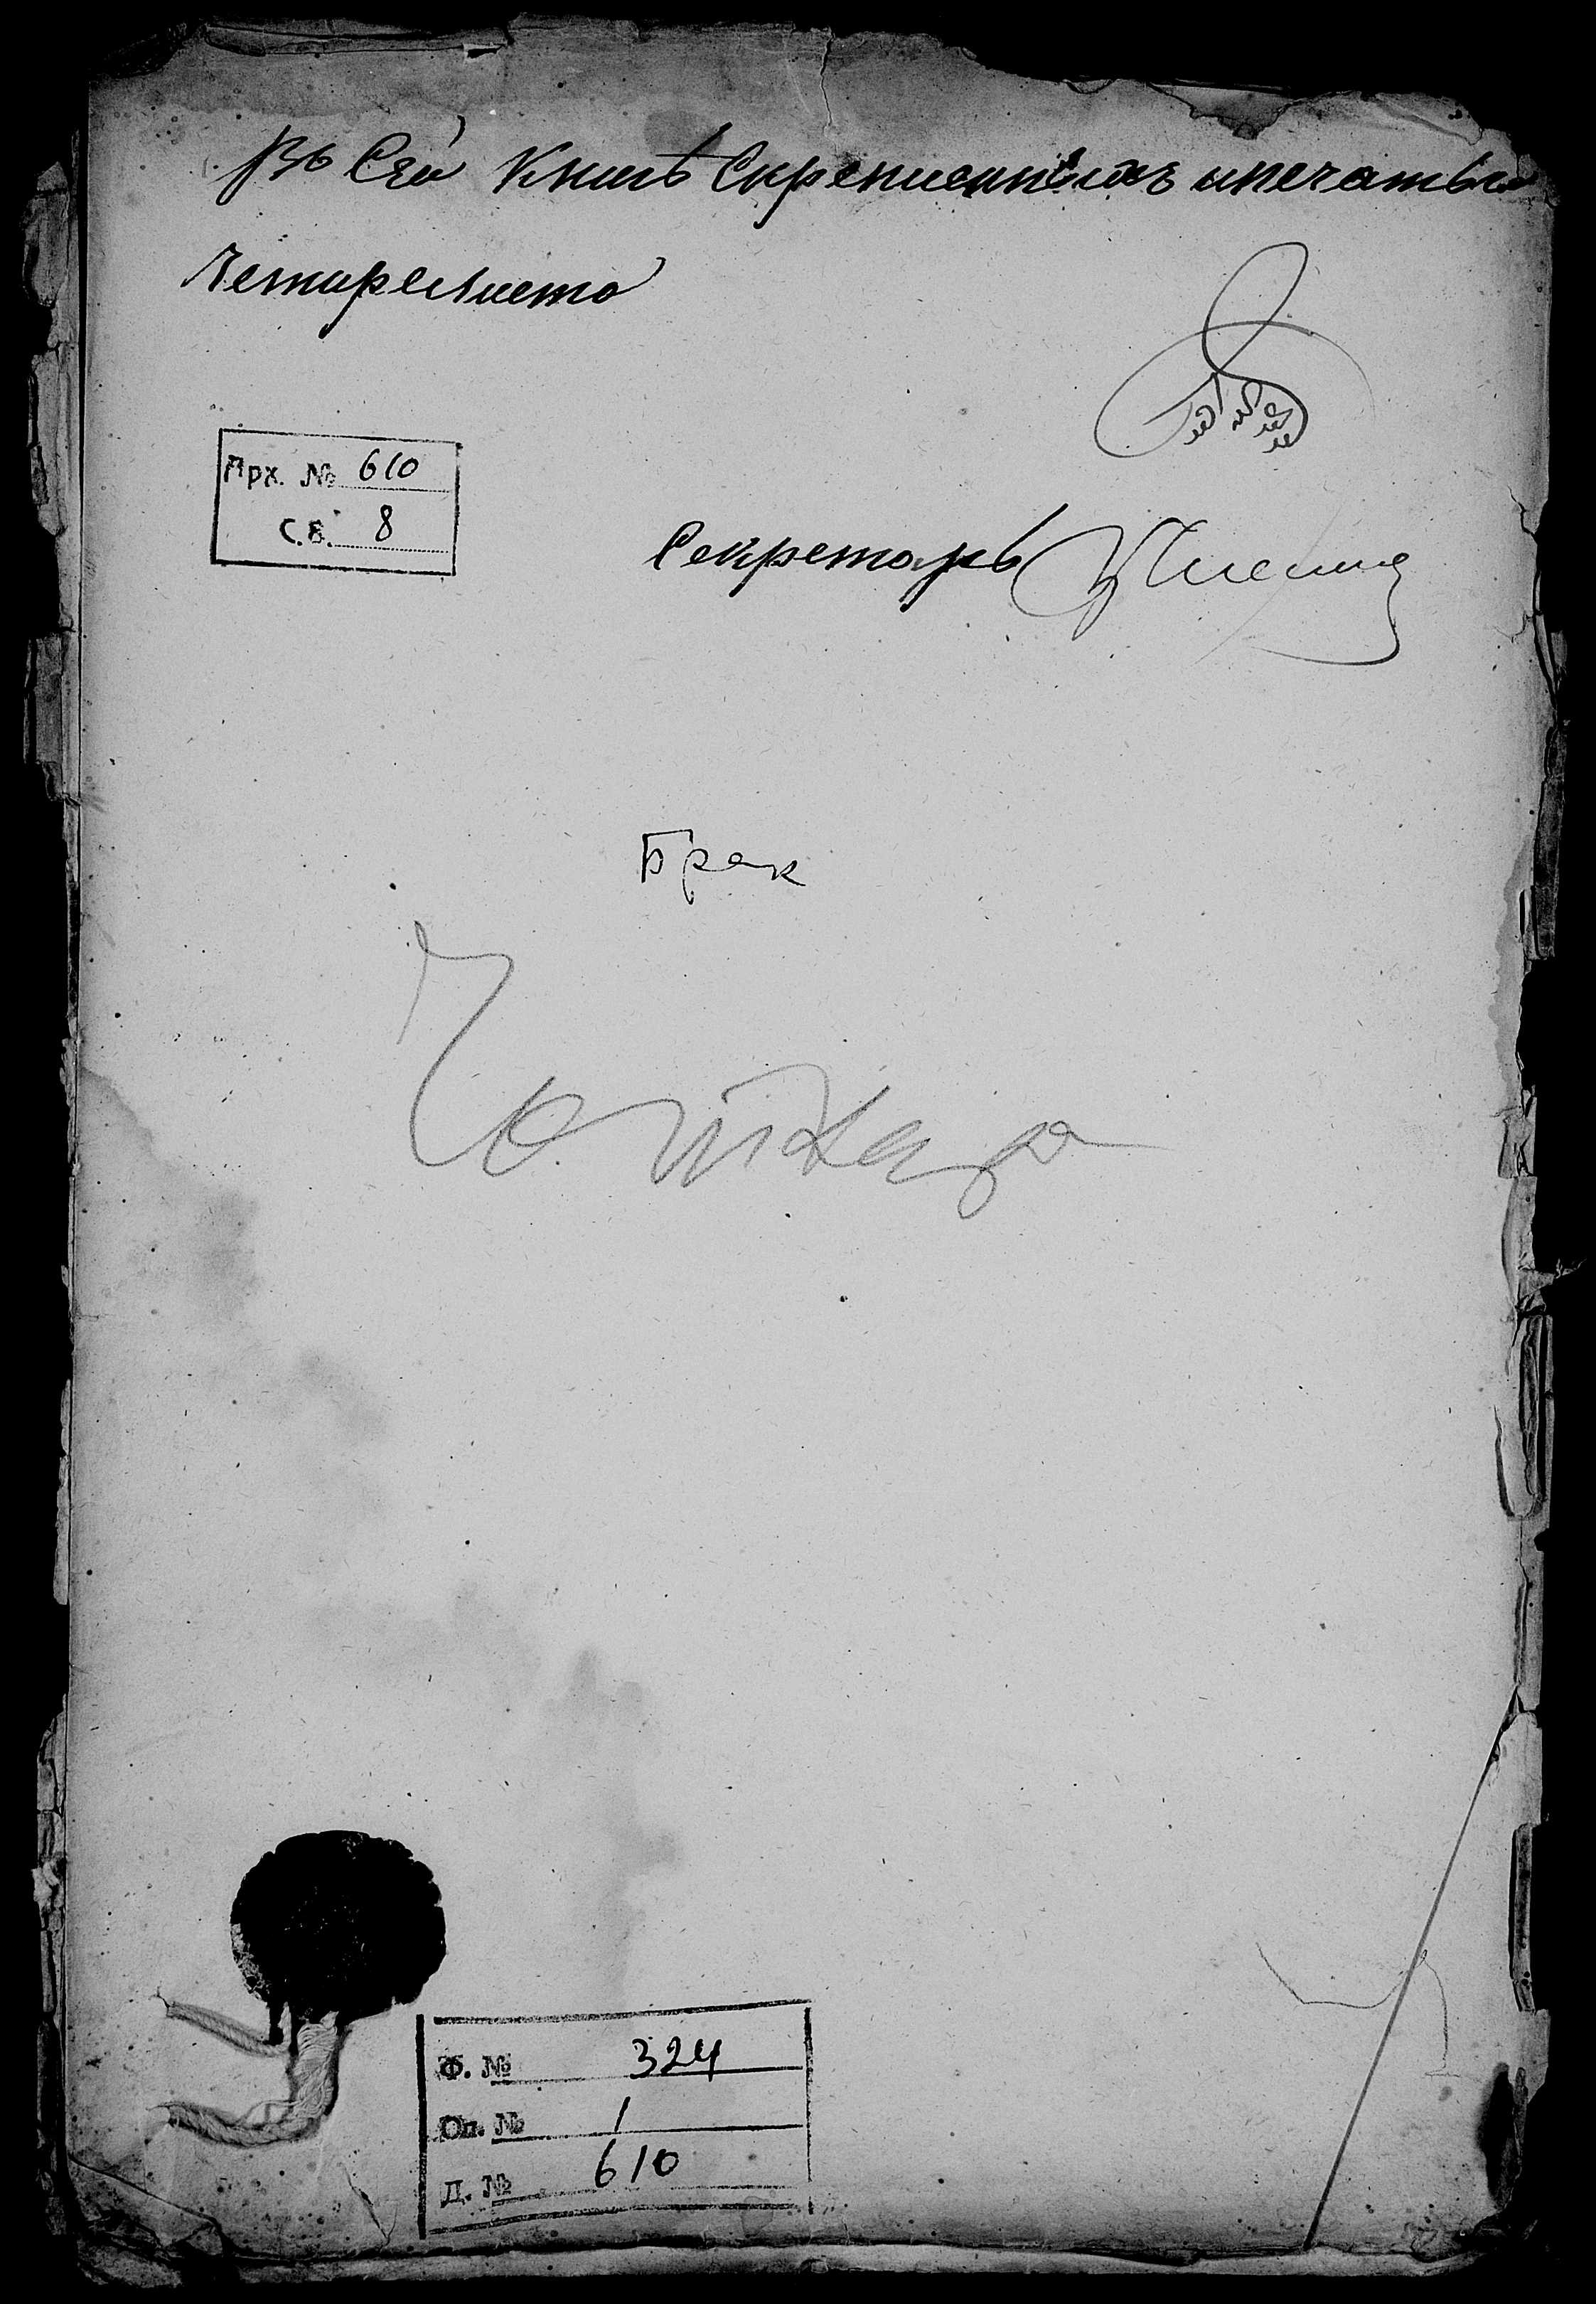 Въ Сей Книгѣ Скрепленныхъ ипечатью
Четыре листа
Арх. № 610
С.В. 8
Секретарь
Брак
Ф. № 324
Оп. № 1
Д. № 610